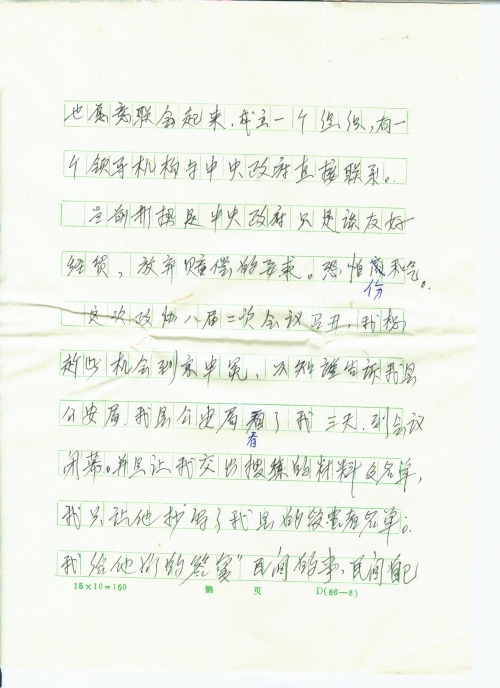 也愿意联合起来，成立一个组织，有一
个领导机构与中央政府直接联系。
当前打损是中央政府只是谈友好
经贸，放弃赔偿的要求。恐怕 和吃。
份
这次政协八届二次会议召开，我想
趁此机会到京申冤，不知谁告诉我县
公安局。我县公安局看了我三天，到会议
看
闭幕。并且让我交出搜练的材料及名单，
我只让他抄写了我县的受害者名单。
我给他们的答案"民间的事，民间自己
15×10=150 第 页 D(86—8)